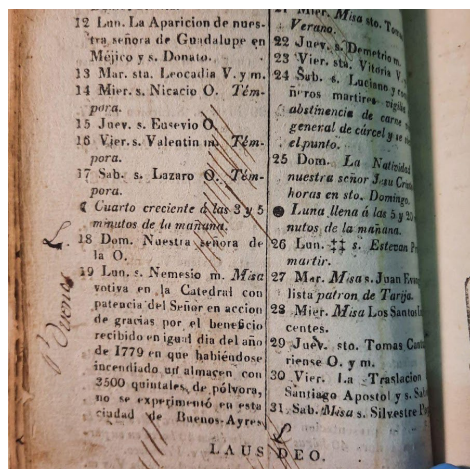 12 Lun. La Aparicion de nues-
tra señora de Guadalupe en
Méjico y s. Donato.
13 Mar. sta. Leocadia V. y m.
14 Mier. s. Nicacio O. Tém-
pora.
15 Juev. s. Eusevio O.
16 Vier. s. Valentin m. Tém-
pora.
17 Sab. s. Lazaro O. Tém-
pora.
Cuarto creciente á las 3 y 5
minutos de la mañana.
18 Dom. Nuestra señora de
la O.
19 Lun. s. Nemesio m. Misa
votiva en la Catedral con
patencia del Señor en accion
de gracias por el beneficio
recibido en igual dia del año
de 1779 en que habiéndose
incendiado un almacen con
3500 quintales de pólvora,
no se experimentó en esta
ciudad de Buenos-Ayres
21 Mier. Misa sto. Tom
Verano.
22 Juev. s. Demetrio m.
23 Vier. sta. Vitoria V.
24 Sab. s. Luciano y com
ñeros martires vigilia
abstinencia de carne
general de cárcel y se
el punto.
25 Dom. La Natividad
nuestra señor Jesu Crist
horas en sto. Domingo.
● Luna llena á las 5 y 20
nutos de la mañana.
26 Lun. ‡‡ s. Estevan Pr
martir.
27 Mar. Misa s. Juan Evan
lista patron de Tarija.
28 Mier. Misa Los Santos In
centes.
29 Juev. sto. Tomas Cantu
riense O. y m.
30 Vier. La Traslacion
Santiago Apostol y s. Sab
31 Sab. Misa s. Silvestre P
LAUS DEO.